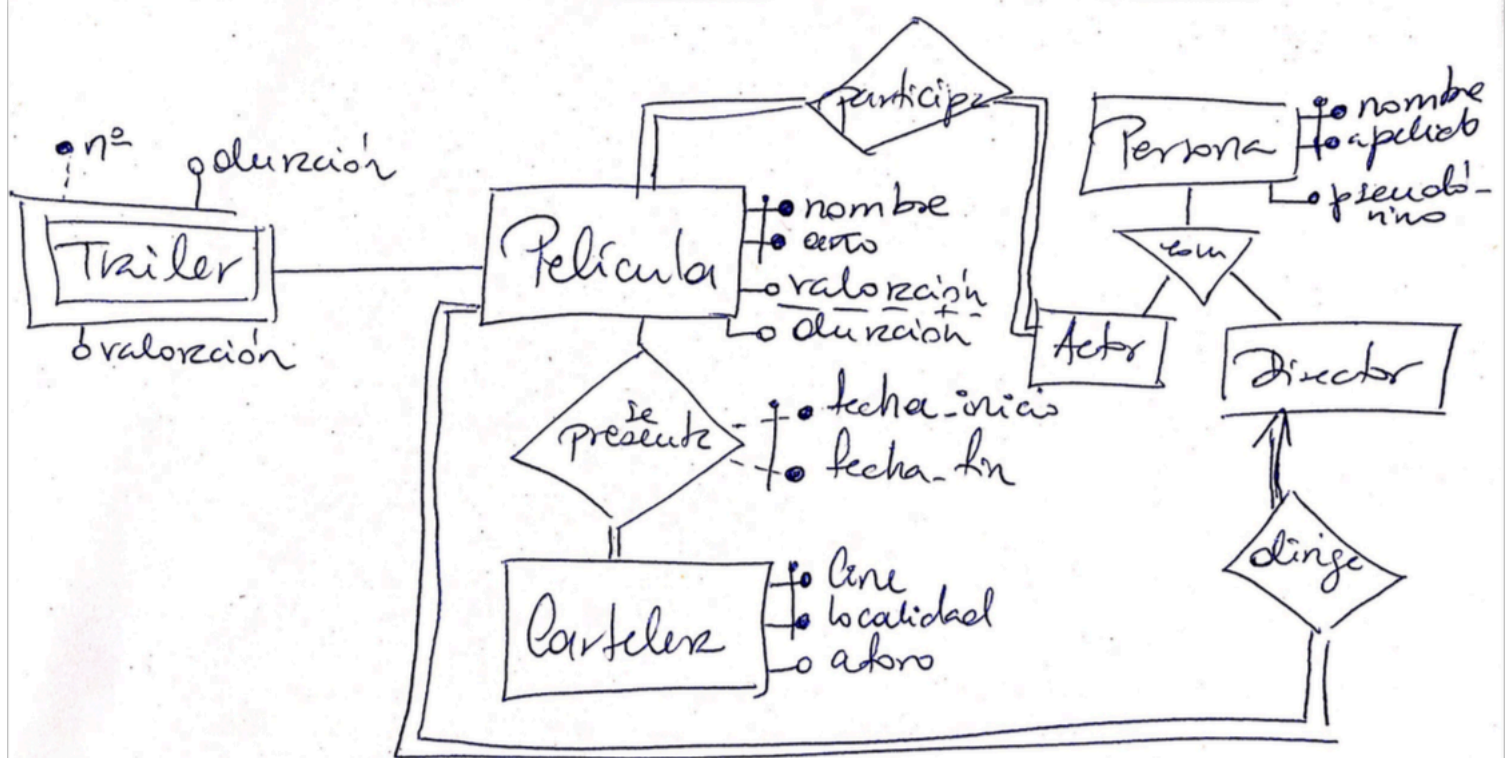 participa
nº
duración
Trailer
valoración
Película
nombre
año
valoración
duración
Persona
nombre
apellido
pseudó-
nimo
Actor
Director
se
presenta
fecha_inicio
fecha_fin
Cartelera
Cine
localidad
aforo
dirige